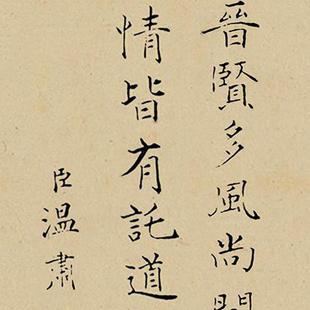 晉賢多風尚
情皆有託道
臣溫肅